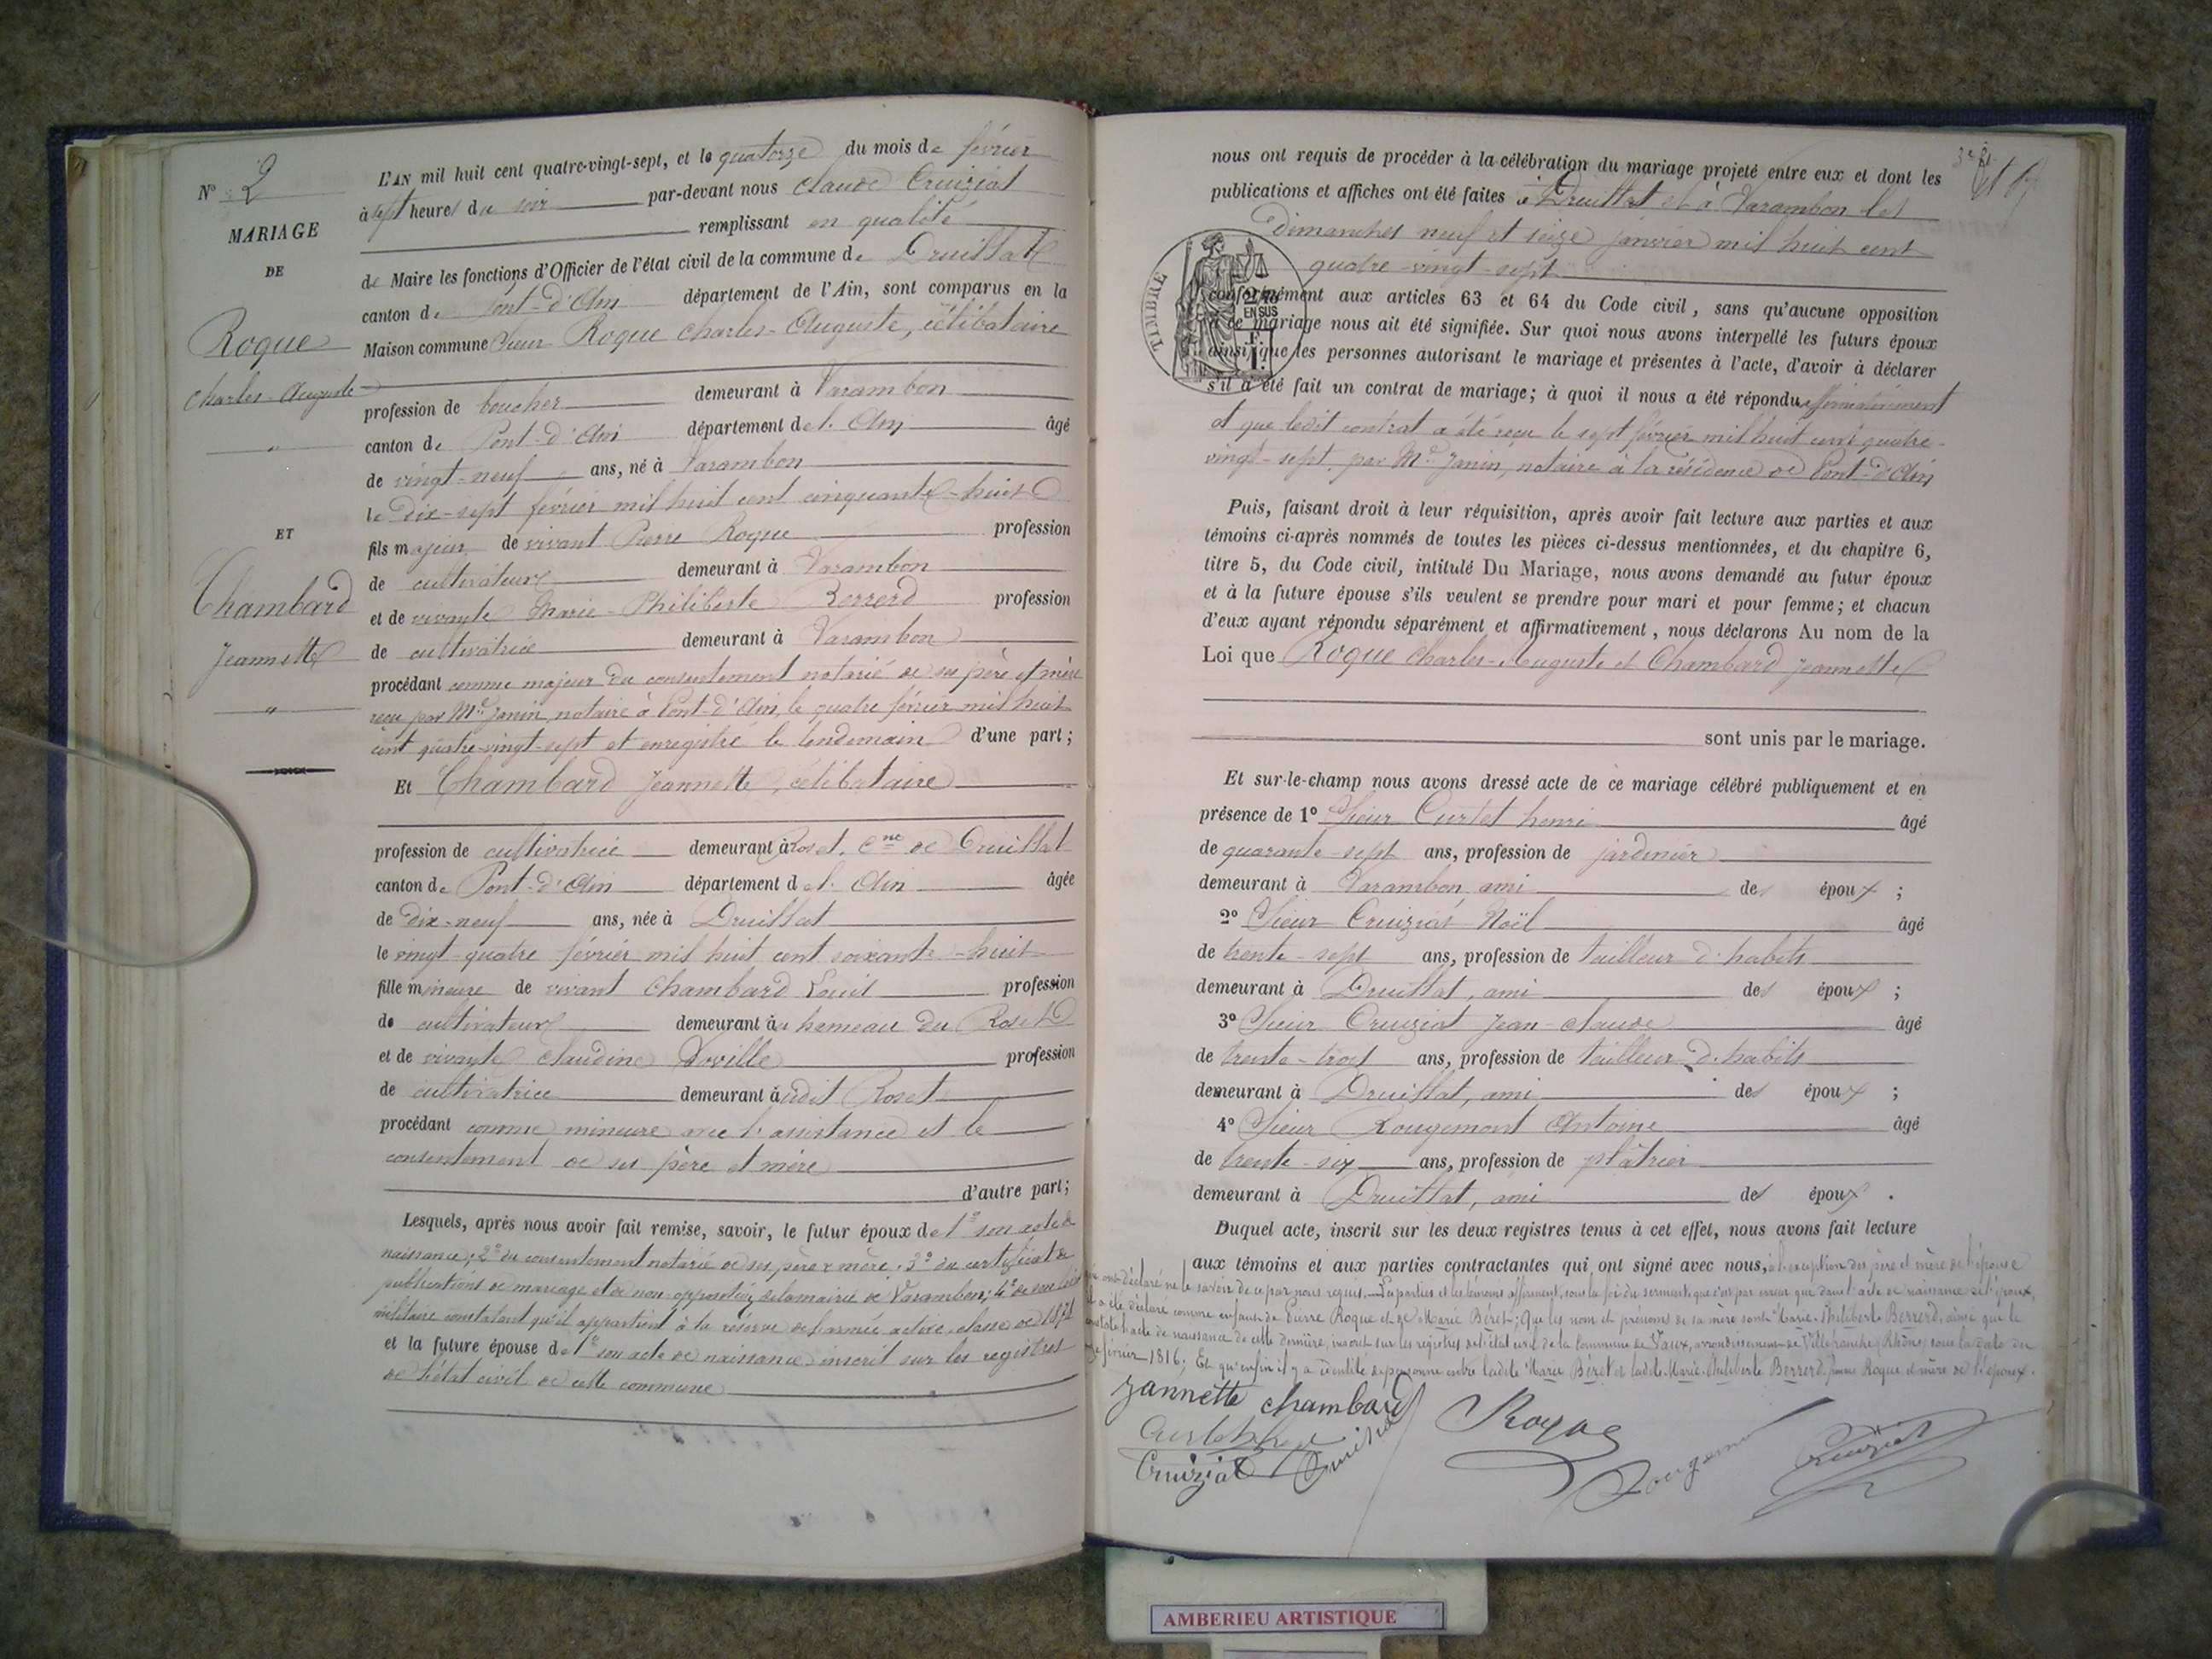 Nº 2
MARIAGE
DE
Roque
Charles-Auguste
ET
Chambard
Jeannette
L'AN mil huit cent quatre-vingt-sept, et le quatorze du mois de février
à sept heures du soir par-devant nous Claude Cruiziat
remplissant en qualité
de Maire les fonctions d'Officier de l'état civil de la commune de Druillat
canton de Pont-d'Ain département de l'Ain, sont comparus en la
Maison commune Sieur Roque Charles-Auguste, célibataire
profession de boucher demeurant à Varambon
canton de Pont-d'Ain département de l'Ain âgé
de vingt-neuf ans, né à Varambon
le dix-sept février mil huit cent cinquante-huit
fils majeur de vivant Pierre Roque profession
de cultivateur demeurant à Varambon
et de vivante Marie-Philiberte Berrerd profession
de cultivatrice demeurant à Varambon
procédant comme majeur du consentement notarié de ses père et mère
reçu par Me Janin, notaire à Pont-d'Ain, le quatre février mil huit
cent quatre-vingt-sept et enregistré le lendemain d'une part;
Et Chambard Jeannette, célibataire
profession de cultivatrice demeurant à Roset, Cne de Druillat
canton de Pont-d'Ain département de l'Ain âgée
de dix-neuf ans, née à Druillat
le vingt-quatre février mil huit cent soixante-huit
fille mineure de vivant Chambard Louis profession
de cultivateur demeurant au hameau du Roset
et de vivante Claudine profession
de cultivatrice demeurant audit Roset
procédant comme mineure avec l'assistance et le
consentement de ses père et mère
d'autre part;
Lesquels, après nous avoir fait remise, savoir, le futur époux de 1º son acte de
naissance; 2º du consentement notarié de ses père & mère; 3º du certificat de
publications de mariage et de non-opposition de la mairie de Varambon; 4º de son livret
militaire constatant qu'il appartient à la réserve de l'armée active, classe de 1878
et la future épouse de 1º son acte de naissance inscrit sur les registres
de l'état civil de cette commune
nous ont requis de procéder à la célébration du mariage projeté entre eux et dont les
publications et affiches ont été faites à Druillat et à Varambon les
dimanches neuf et seize janvier mil huit cent
quatre-vingt-sept
TIMBRE
2/10
EN SUS
conformément aux articles 63 et 64 du Code civil, sans qu'aucune opposition
à ce mariage nous ait été signifiée. Sur quoi nous avons interpellé les futurs époux
ainsi que les personnes autorisant le mariage et présentes à l'acte, d'avoir à déclarer
s'il a été fait un contrat de mariage; à quoi il nous a été répondu affirmativement
et que ledit contrat a été reçu le sept février mil huit cent quatre-
vingt-sept par Me Janin, notaire à la résidence de Pont-d'Ain
Puis, faisant droit à leur réquisition, après avoir fait lecture aux parties et aux
témoins ci-après nommés de toutes les pièces ci-dessus mentionnées, et du chapitre 6,
titre 5, du Code civil, intitulé Du Mariage, nous avons demandé au futur époux
et à la future épouse s'ils veulent se prendre pour mari et pour femme; et chacun
d'eux ayant répondu séparément et affirmativement, nous déclarons Au nom de la
Loi que Roque Charles-Auguste et Chambard Jeannette
sont unis par le mariage.
Et sur-le-champ nous avons dressé acte de ce mariage célébré publiquement et en
présence de 1º Sieur Curtet henri âgé
de quarante-sept ans, profession de jardinier
demeurant à Varambon, ami des époux ;
2º Sieur Cruiziat Noël âgé
de trente-sept ans, profession de tailleur d'habits
demeurant à Druillat, ami des époux ;
3º Sieur Cruiziat Jean-Claude âgé
de trente-trois ans, profession de tailleur d'habits
demeurant à Druillat, ami des époux ;
4º Sieur Rougemont Antoine âgé
de trente-six ans, profession de plâtrier
demeurant à Druillat, ami des époux .
Duquel acte, inscrit sur les deux registres tenus à cet effet, nous avons fait lecture
aux témoins et aux parties contractantes qui ont signé avec nous, à l'exception des père et mère de l'épouse
qui ont déclaré ne le savoir de ce par nous requis. Les parties et les témoins affirment, sous la foi du serment, que c'est par erreur que dans l'acte de naissance de l'époux,
il a été déclaré comme enfant de Pierre Roque et de Marie Béret; Que les nom et prénoms de sa mère sont Marie-Philiberte Berrerd, ainsi que le
constate l'acte de naissance de cette dernière, inscrit sur les registres de l'état civil de la commune de Vaux, arrondissement de Villefranche (Rhône) sous la date du
février 1816; Et qu'enfin il y a identité de personne entre ladite Marie Béret et ladite Marie-Philiberte Berrerd, femme Roque et mère de l'époux.
Jannette chambard
Roque
Cruiziat
Rougemont
Cruiziat
AMBERIEU ARTISTIQUE